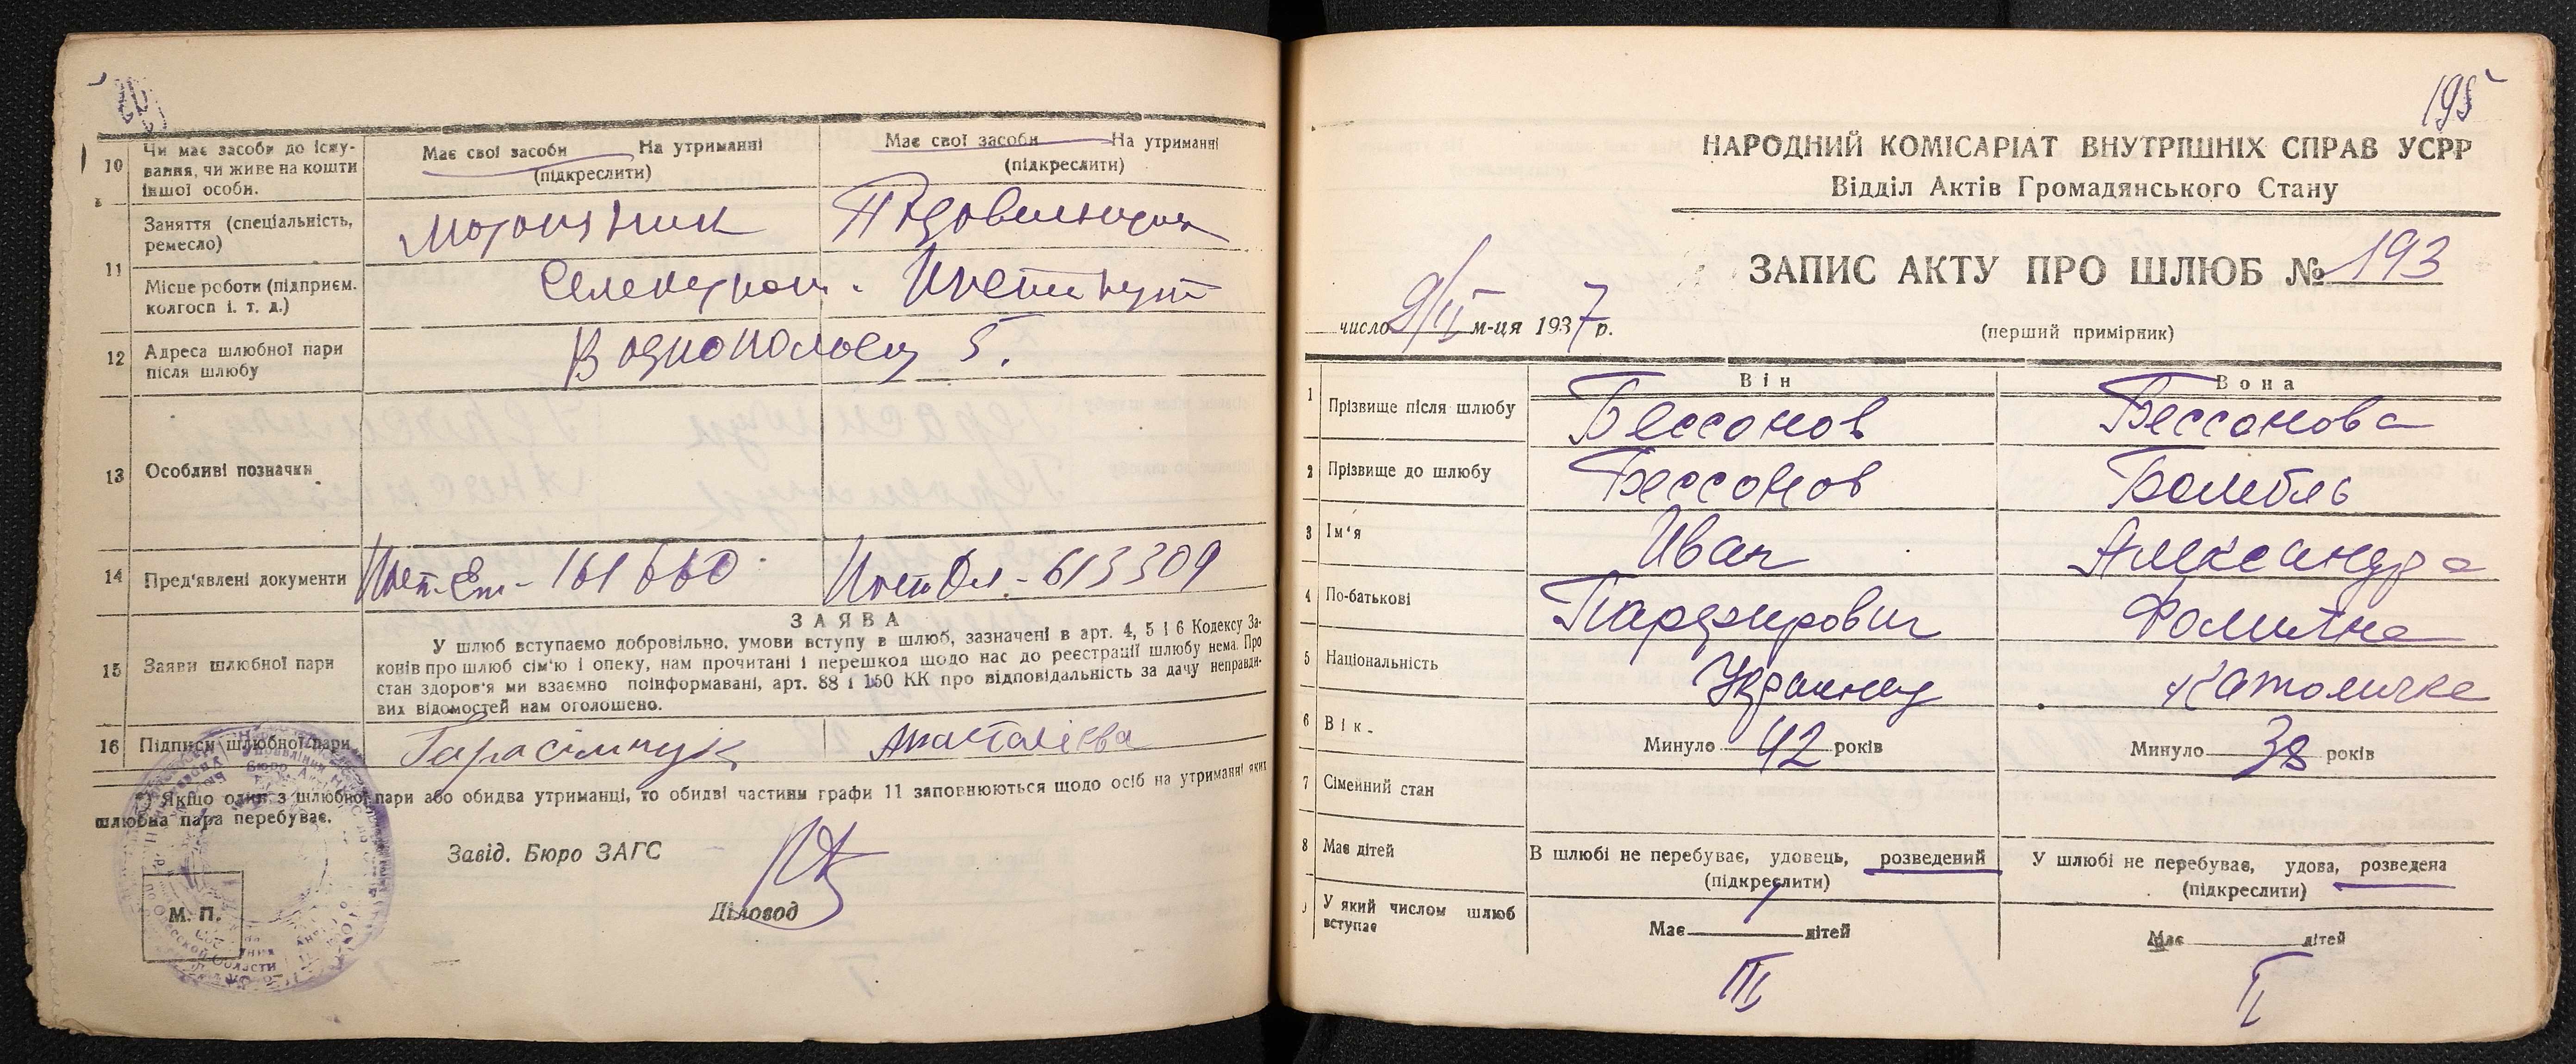 10 Чи має засоби до існу-
вання, чи живе на кошти
іншої особи.
Має свої засоби На утриманні
(підкреслити)
Має свої засоби На утриманні
(підкреслити)
11 Заняття (спеціальність,
ремесло)
Місце роботи (підприєм.
колгосп і. т. д.)
Институт
12 Адреса шлюбної пари
після шлюбу
5.
13 Особливі позначки
14 Пред'явлені документи
161660
613309
15 Заяви шлюбної пари
ЗАЯВА
У шлюб вступаємо добровільно, умови вступу в шлюб, зазначені в арт. 4, 5 і 6 Кодексу За-
конів про шлюб сім'ю і опеку, нам прочитані і перешкод щодо нас до реєстрації шлюбу нема. Про
стан здоров'я ми взаємно поінформавані, арт. 88 і 150 КК про відповідальність за дачу неправди-
вих відомостей нам оголошено.
16 Підписи шлюбної пари
Герасімчук
Анасталієва
*) Якщо один з шлюбної пари або обидва утриманці, то обидві частини графи 11 заповнюються щодо осіб на утриманні яких
шлюбна пара перебуває.
Завід. Бюро ЗАГС
Діловод
М. П.
195
НАРОДНИЙ КОМІСАРІАТ ВНУТРІШНІХ СПРАВ УСРР
Відділ Актів Громадянського Стану
ЗАПИС АКТУ ПРО ШЛЮБ № 193
число 9/II м-ця 1937 р.
(перший примірник)
Він Вона
1 Прізвище після шлюбу Бессонов Бессонова
2 Прізвище до шлюбу Бессонов Бомбль
3 Ім'я Иван Александра
4 По-батькові Парфирович Фомична
5 Національність Украинец Католичка
6 Вік. Минуло 42 років Минуло 38 років
7 Сімейний стан
8 Має дітей
В шлюбі не перебуває, удовець, розведений
(підкреслити)
У шлюбі не перебуває, удова, розведена
(підкреслити)
У який числом шлюб
вступає
Має 1 дітей
Має дітей
III II